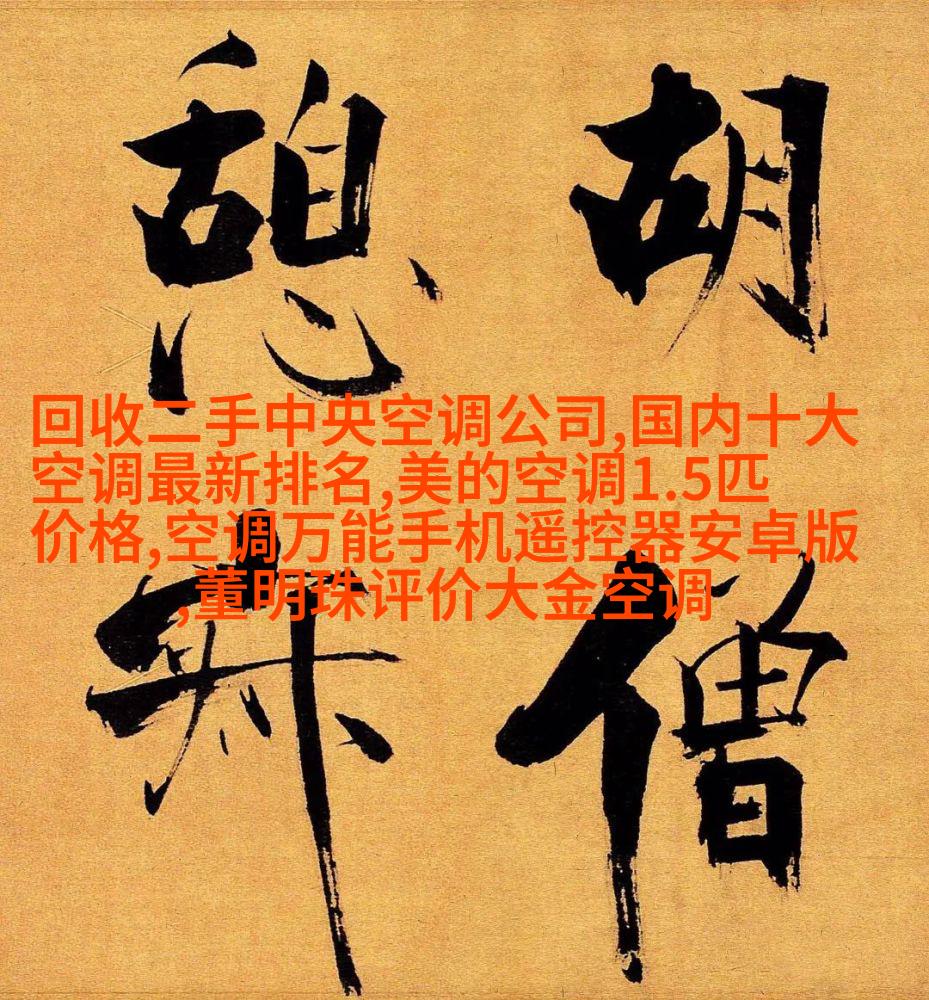 胡僧
憩寂
回收二手中央空调公司,国内十大
空调最新排名,美的空调1.5匹
价格,空调万能手机遥控器安卓版
,董明珠评价大金空调